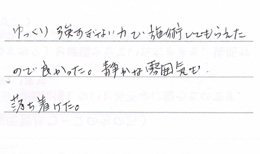 ゆっくり強すぎない力で施術してもらえた
ので良かった。静かな雰囲気で
落ち着けた。